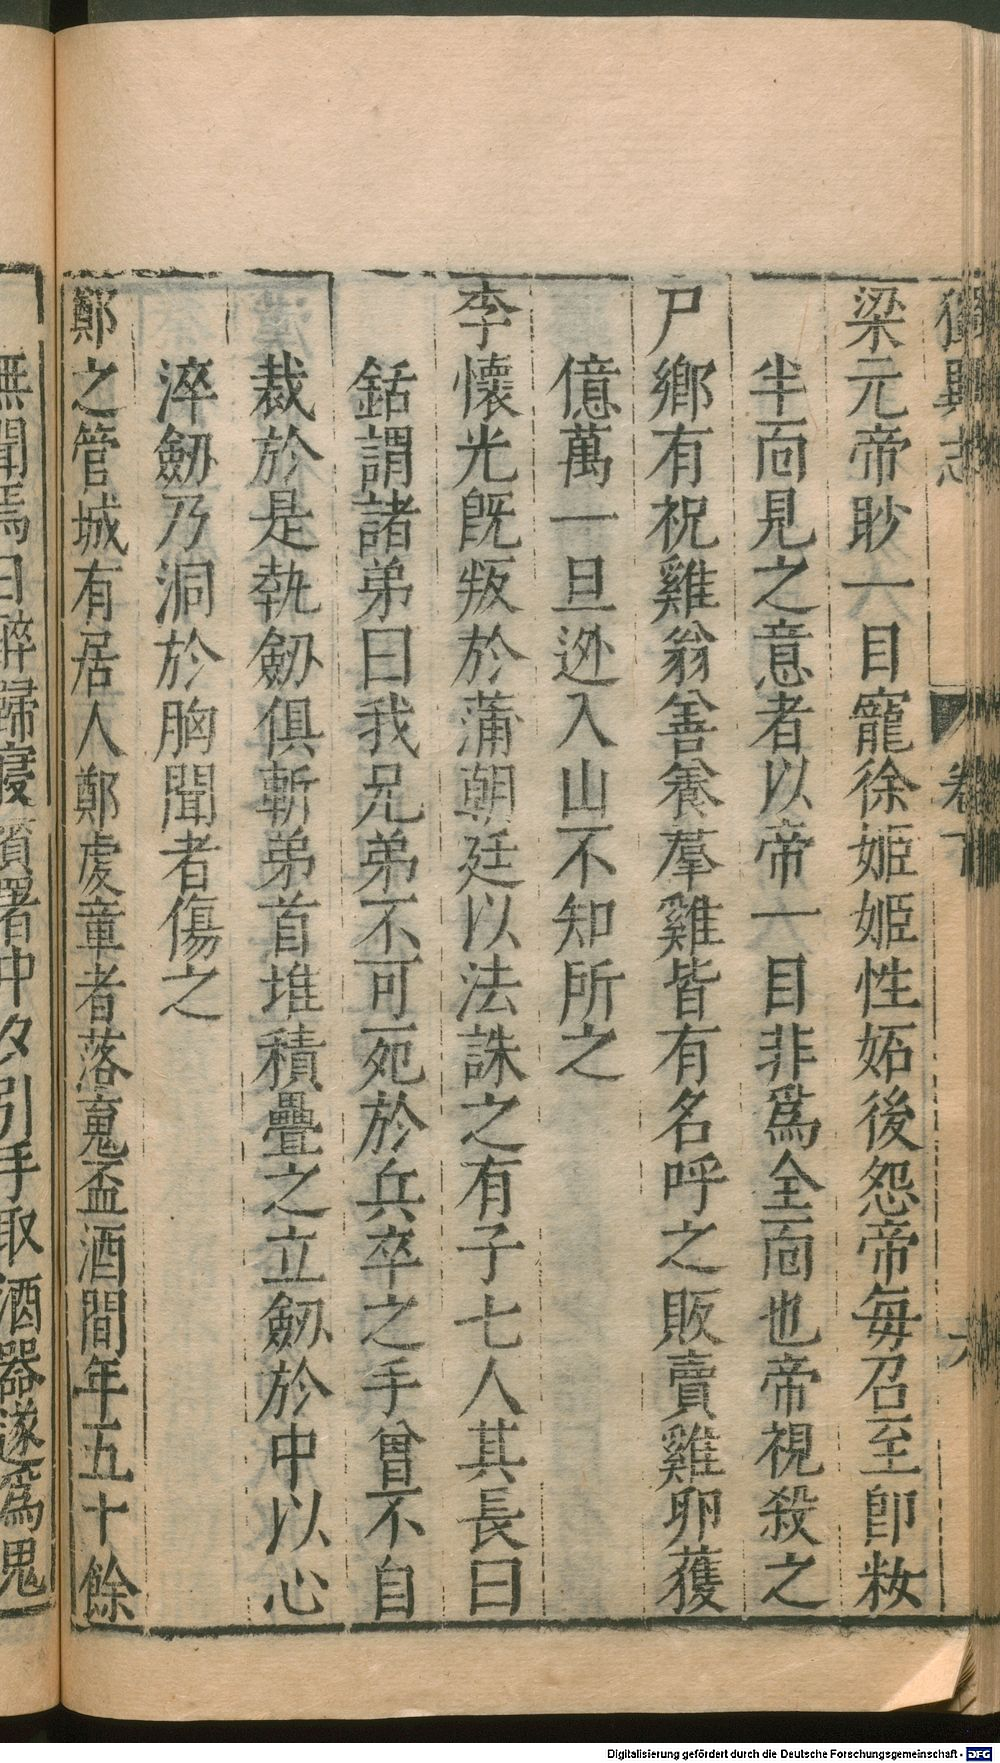 獨異志 卷下
梁元帝眇一目寵徐姬姬性妬後怨帝每召至卽粧
半面見之意者以帝一目非爲全面也帝視殺之
尸鄉有祝雞翁善養羣雞皆有名呼之販賣雞卵獲
億萬一旦逃入山不知所之
李懷光既叛於蒲朝廷以法誅之有子七人其長曰
銛謂諸弟曰我兄弟不可死於兵卒之手曾不自
裁於是執劒俱斬弟首堆積疊之立劒於中以心
淬劒乃洞於胸聞者傷之
鄭之管城有居人鄭虔章者落魄盃酒間年五十餘
無聞焉日醉歸寢須置中夕引手取酒器遂爲鬼
Digitalisierung gefördert durch die Deutsche Forschungsgemeinschaft - DFG